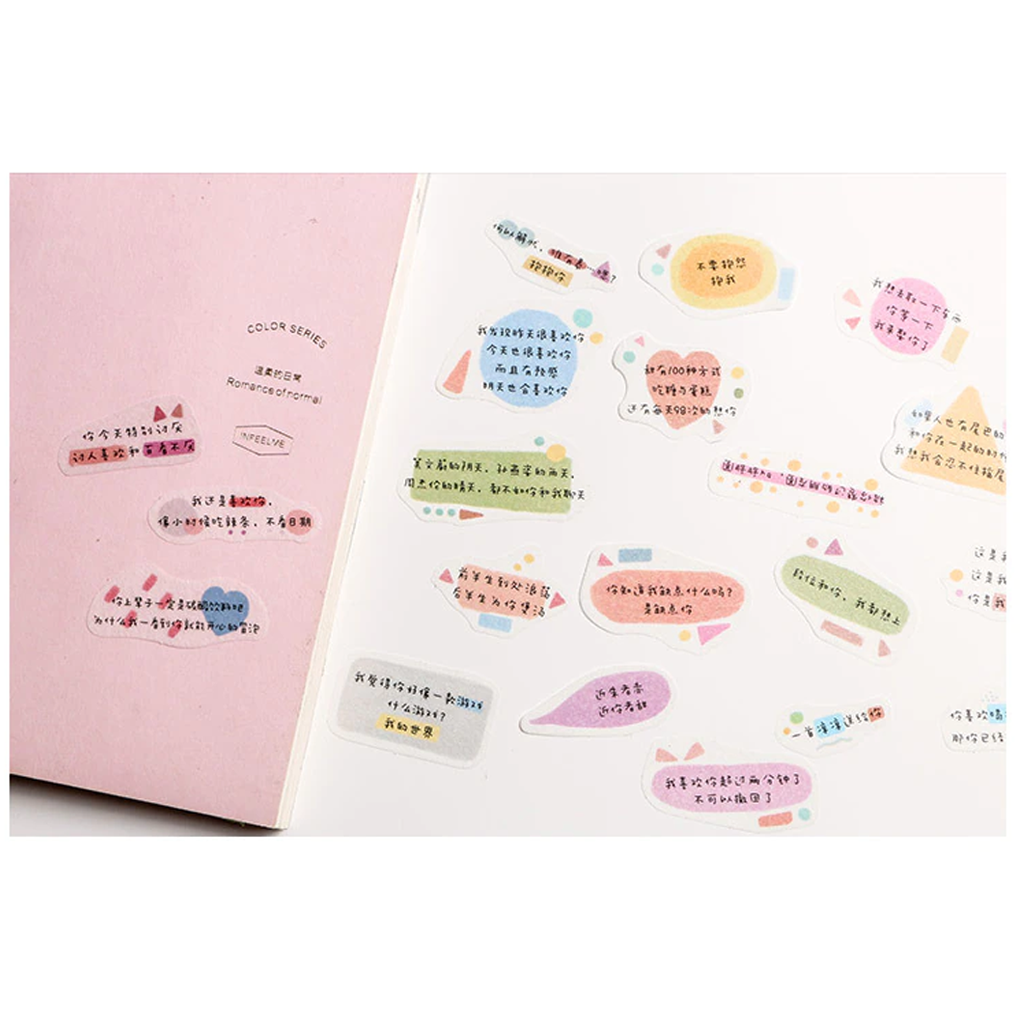 COLOR SERIES
温柔的日常
Romance of normal
INFEELME
你今天特别讨厌
讨人喜欢和百看不厌
我还是喜欢你,
像小时候吃辣条, 不看日期
你上辈子一定是碳酸饮料吧
为什么我一看到你就能开心的冒泡
何以解忧,
抱抱你
不要抱怨
抱我
我想去取一下东西
你等一下
我来娶你了
我发现昨天很喜欢你
今天也很喜欢你
而且有预感
明天也会喜欢你
就有100种方式
吃糖与蛋糕
还有每天98次的想你
莫文蔚的阴天, 孙燕姿的雨天,
周杰伦的晴天, 都不如你和我聊天
如果人也有尾巴的
和你在一起的时候
我想我会忍不住摇尾
前半生到处浪荡
后半生为你煲汤
你知道我缺点什么吗?
是缺点你
段位和你, 我都想上
这是我
这是我
你是我
我觉得你好像一款游戏
什么游戏?
我的世界
近朱者赤
近你者甜
一首凉凉送给你
你喜欢喝
那你已经
我喜欢你超过两分钟了
不可以撤回了